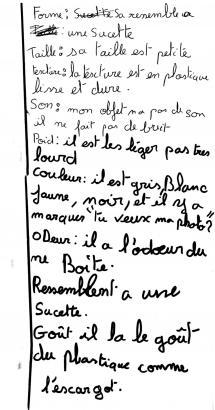 Forme: Sa resemble a
une Sucette
Taille: sa taille est petite
texture: la texture est en plastique
lisse et dure.
Son: mon objet na pas de son
il ne fait pas de bruit
Poid: il est les léger pas tres
lourd
Couleur: il est gris, Blanc
jaune, noir, et il y a
marquer "tu veux ma photo?"
ODeur: il a l'odoeur du
ne Boîte.
Ressemblent a une
Sucette.
Goût il la le goût
du plastique comme
l'escargot.